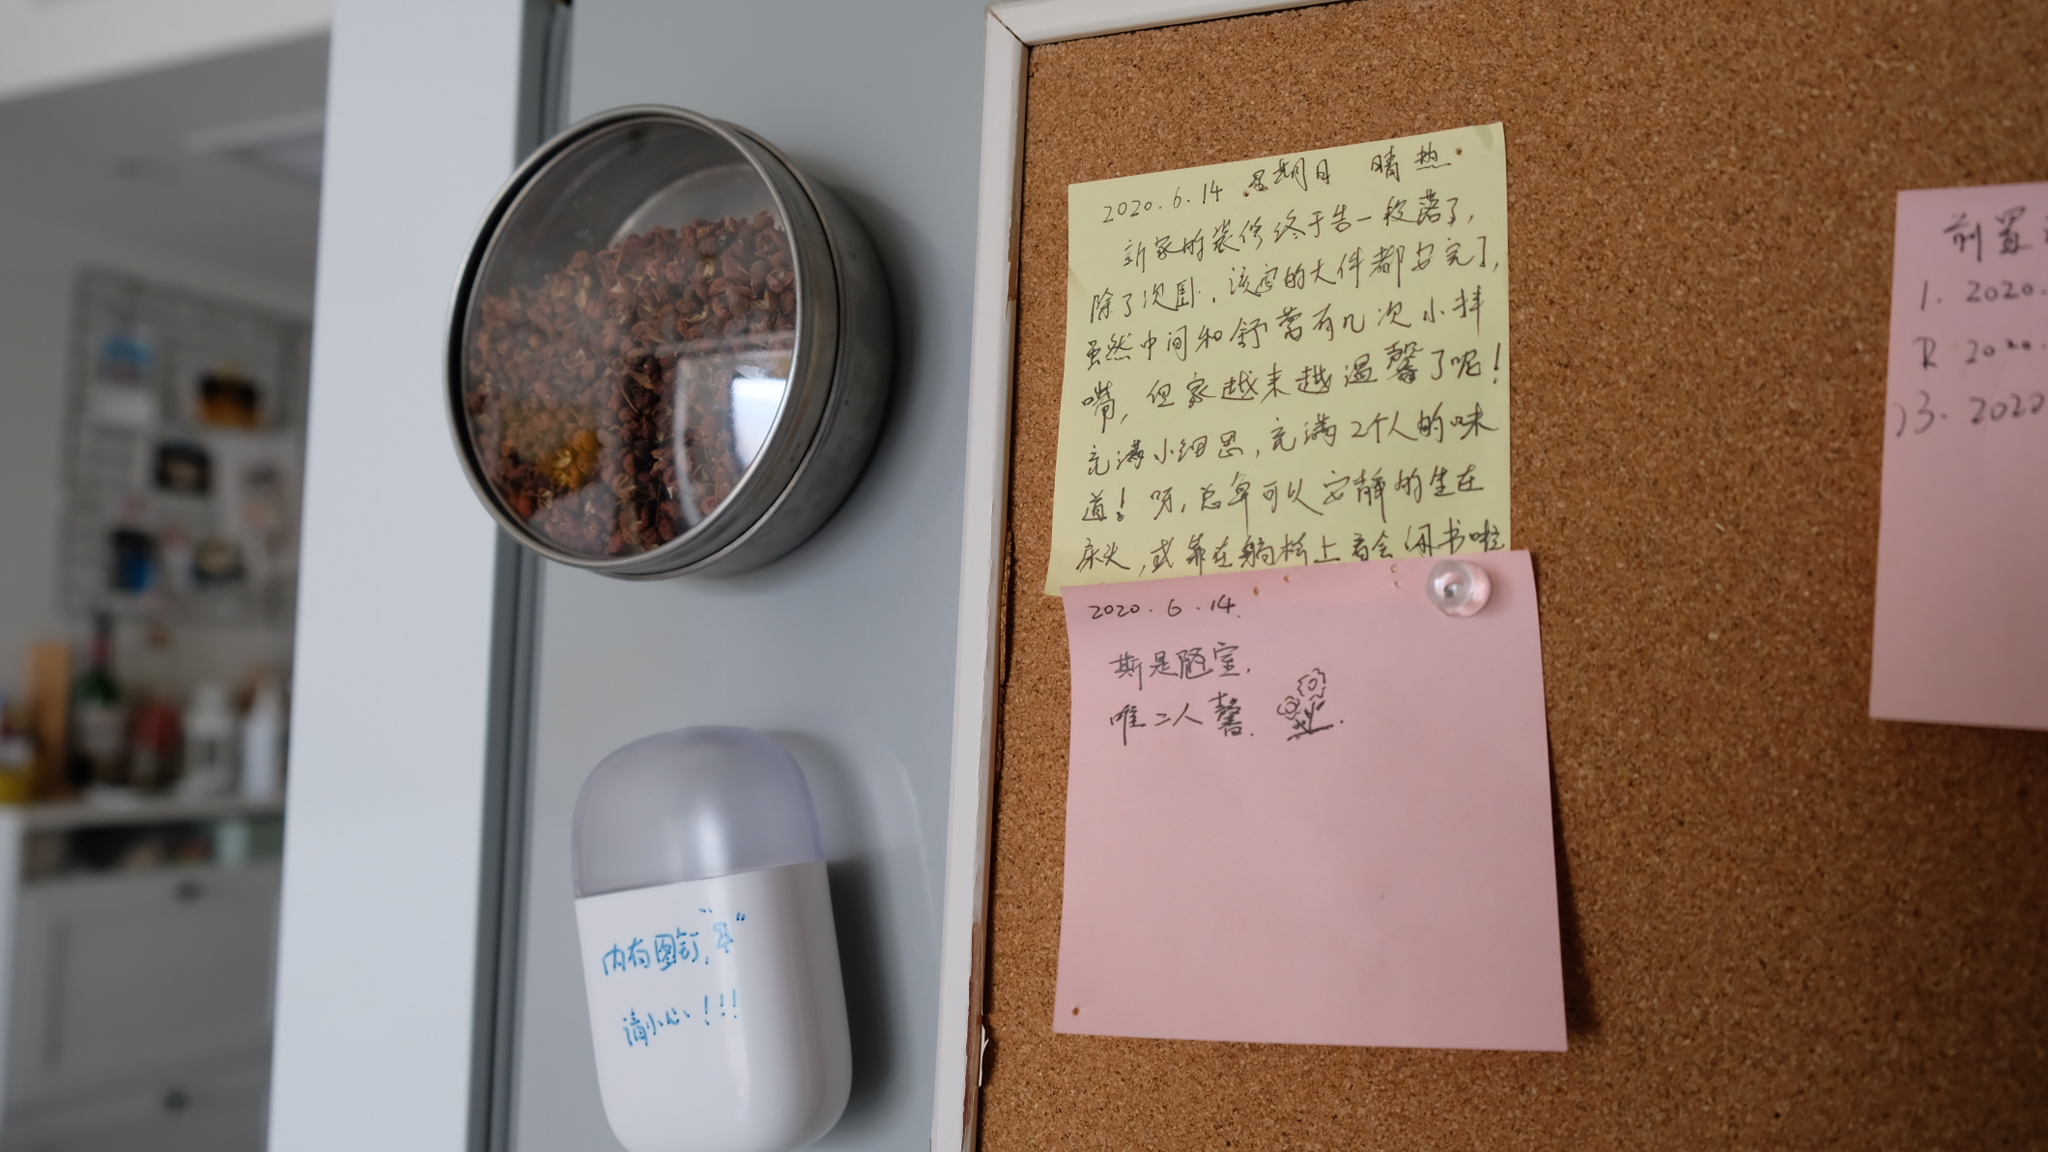 2020.6.14 星期日 晴 热
新家的装修终于告一段落了,
除了次卧,该安的大件都安完了,
虽然中间和舒蕾有几次小拌
嘴,但家越来越温馨了呢!
充满小细思,充满2个人的味
道! 呀,总算可以安静的坐在
床头,或靠在躺椅上看会闲书啦
2020.6.14.
斯是陋室,
唯二人馨.
前置
1. 2020.
2020.
3. 2020
内有图钉,
请小心!!!